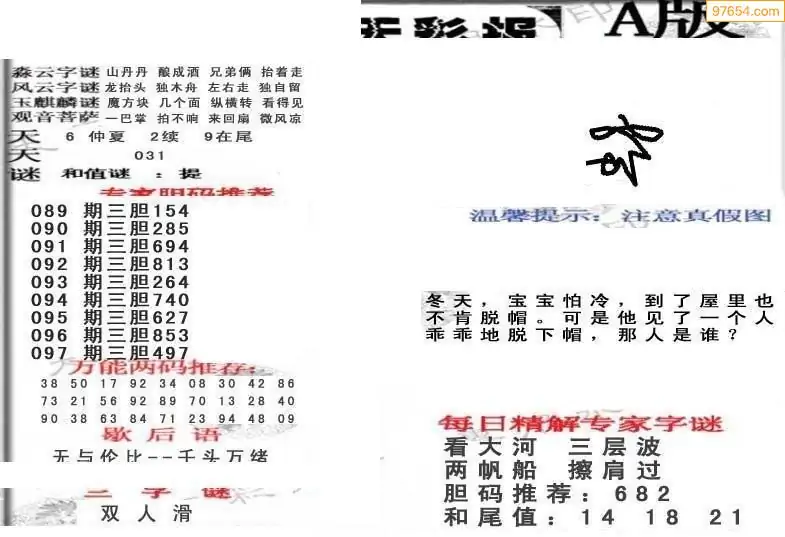 97654.com
A版
淼云字谜 山丹丹 酿成酒 兄弟俩 抬着走
风云字谜 龙抬头 独木舟 左右走 独自留
玉麒麟谜 魔方块 几个面 纵横转 看得见
观音菩萨 一巴掌 拍不响 来回扇 微风凉
天 6 仲夏 2续 9在尾
天 031
谜 和值谜 : 提
专家胆码推荐
089 期三胆154
090 期三胆285
091 期三胆694
092 期三胆813
093 期三胆264
094 期三胆740
095 期三胆627
096 期三胆853
097 期三胆497
万能两码推荐:
38 50 17 92 34 08 30 42 86
73 21 56 92 89 70 13 28 40
90 38 63 84 71 23 94 48 09
歇后语
无与伦比--千头万绪
三字谜
双人滑
温馨提示: 注意真假图
冬天，宝宝怕冷，到了屋里也
不肯脱帽。可是他见了一个人
乖乖地脱下帽，那人是谁？
每日精解专家字谜
看大河 三层波
两帆船 擦肩过
胆码推荐: 682
和尾值: 14 18 21